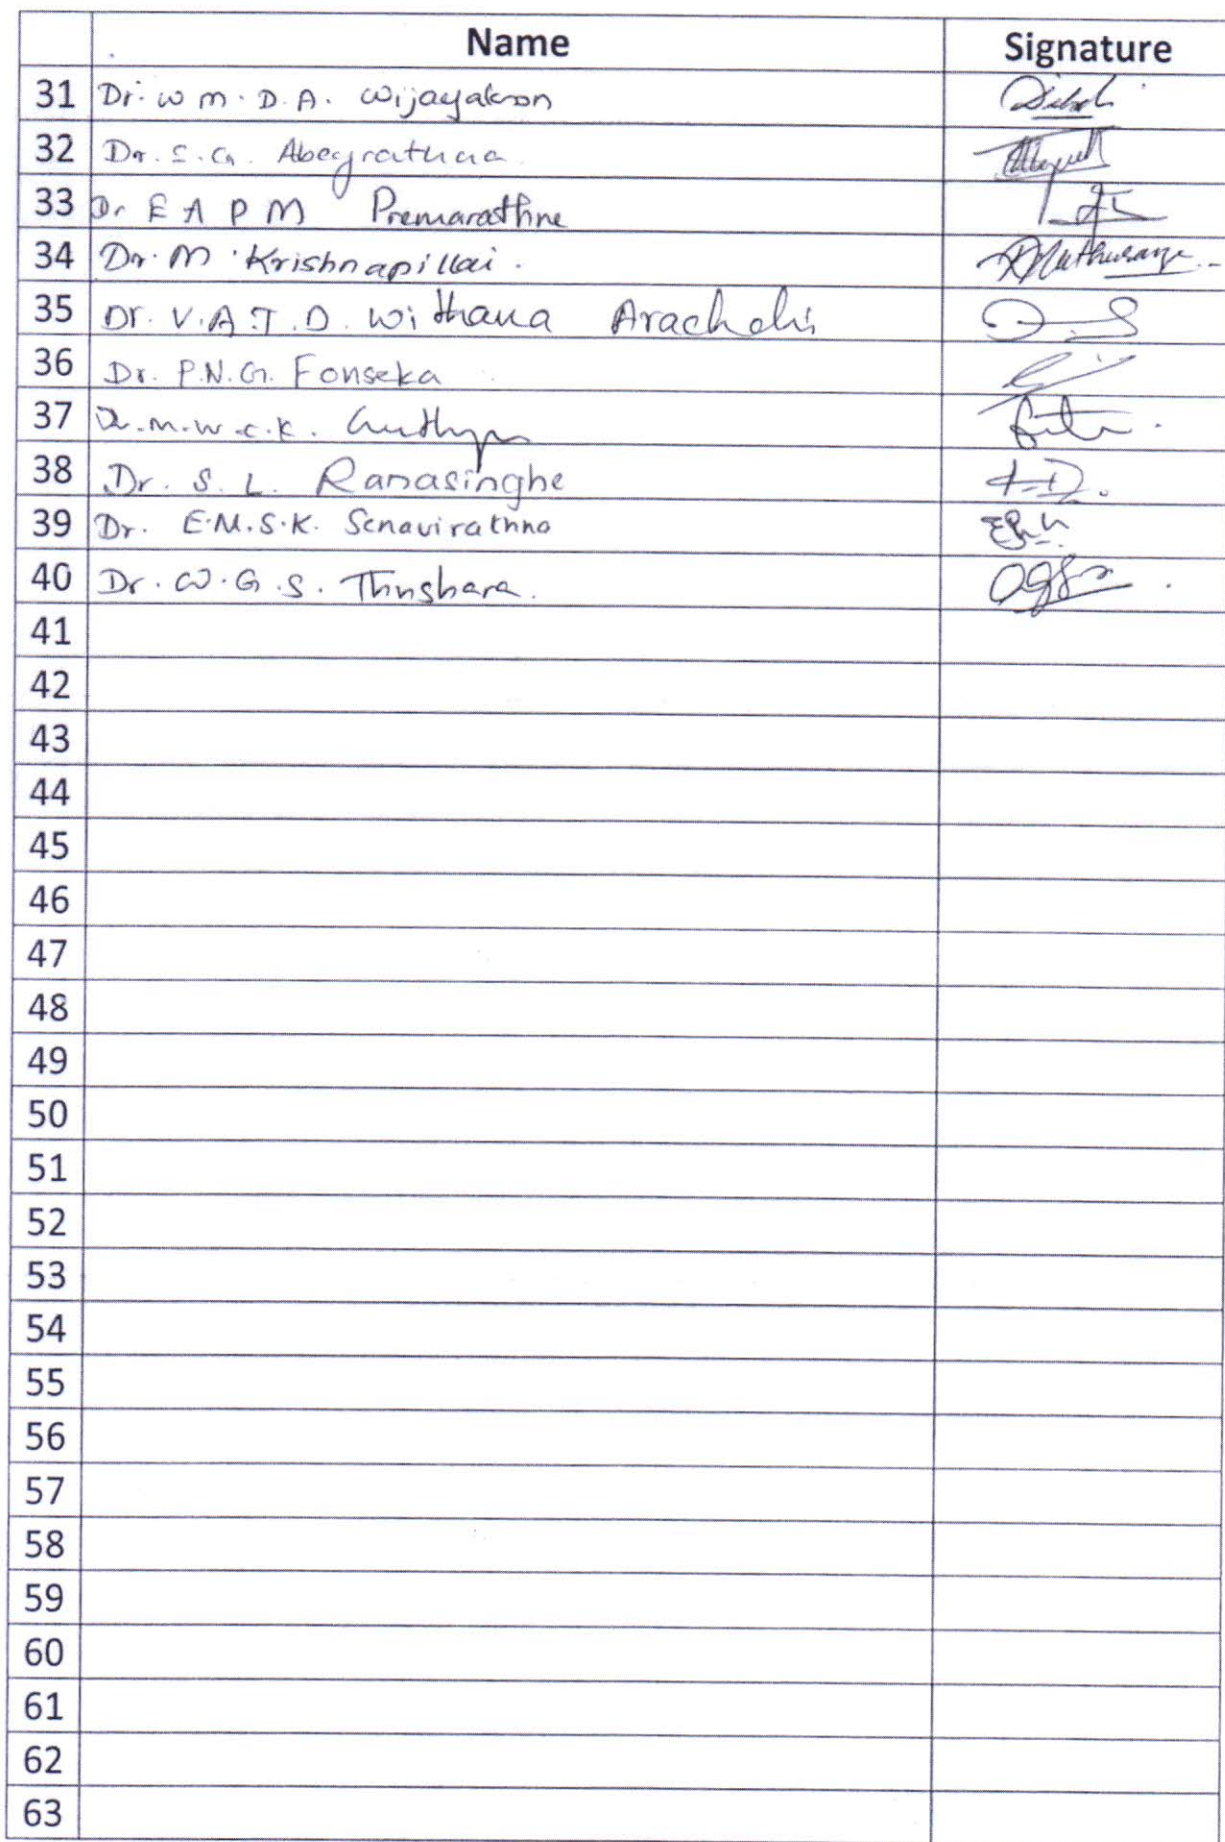 Name Signature
31 Dr. W M. D. A. Wijayakoon
32 Dr. S. G. Abeyrathna
33 Dr E A P M Premarathne
34 Dr. M. Krishnapillai.
35 Dr. V.A.T.D. Withana Arachchi
36 Dr. P.N.G. Fonseka
37 Dr. M.W.C.K.
38 Dr. S. L. Ranasinghe
39 Dr. E.M.S.K. Senavirathna
40 Dr. W.G.S. Thushara.
41
42
43
44
45
46
47
48
49
50
51
52
53
54
55
56
57
58
59
60
61
62
63